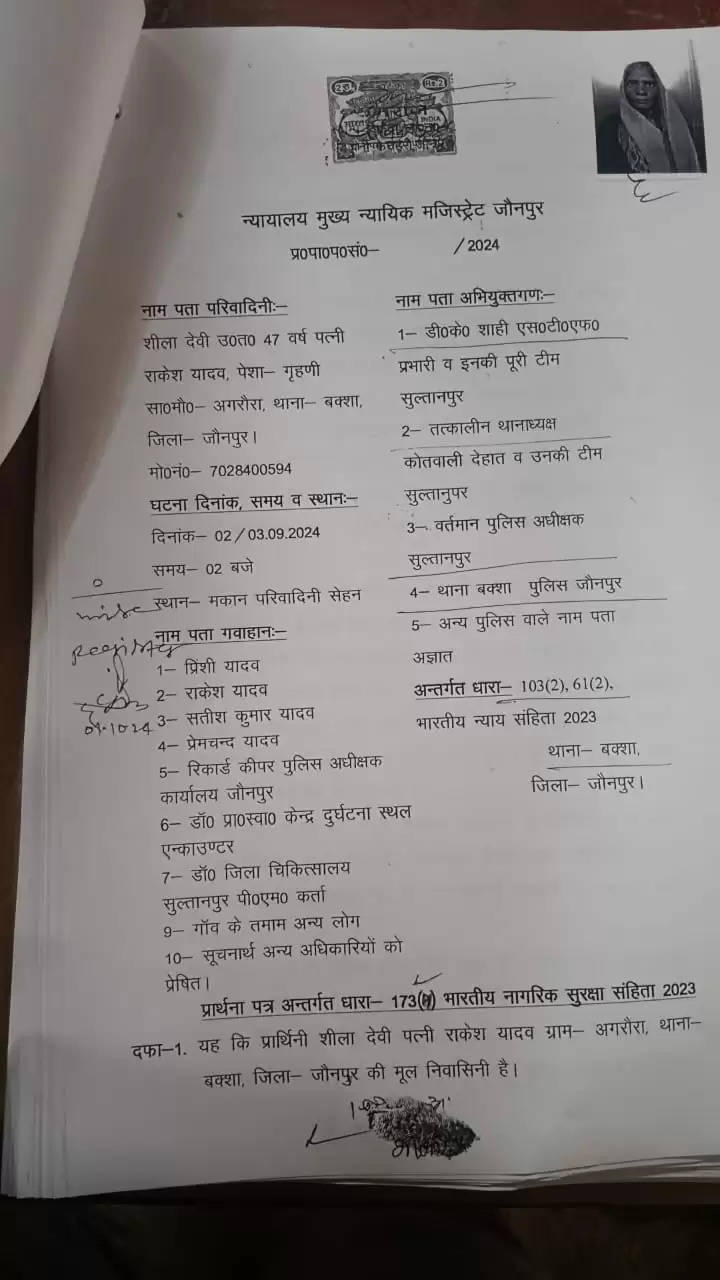 Rs.2
भारत
INDIA
न्यायालय मुख्य न्यायिक मजिस्ट्रेट जौनपुर
प्र0पा0प0सं0– /2024
नाम पता परिवादिनीः–
शीला देवी उ0त0 47 वर्ष पत्नी
राकेश यादव, पेशा– गृहणी
सा0मौ0– अगरौरा, थाना– बक्शा,
जिला– जौनपुर।
मो0नं0– 7028400594
घटना दिनांक, समय व स्थानः–
दिनांक– 02/03.09.2024
समय– 02 बजे
स्थान– मकान परिवादिनी सेहन
नाम पता गवाहानः–
1– प्रिंशी यादव
2– राकेश यादव
3– सतीश कुमार यादव
4– प्रेमचन्द यादव
5– रिकार्ड कीपर पुलिस अधीक्षक
कार्यालय जौनपुर
6– डॉ0 प्रा0स्वा0 केन्द्र दुर्घटना स्थल
एन्काउण्टर
7– डॉ0 जिला चिकित्सालय
सुल्तानपुर पी0एम0 कर्ता
9– गॉव के तमाम अन्य लोग
10– सूचनार्थ अन्य अधिकारियों को
प्रेषित।
नाम पता अभियुक्तगणः–
1– डी0के0 शाही एस0टी0एफ0
प्रभारी व इनकी पूरी टीम
सुल्तानपुर
2– तत्कालीन थानाध्यक्ष
कोतवाली देहात व उनकी टीम
सुल्तानुपर
3– वर्तमान पुलिस अधीक्षक
सुल्तानपुर
4– थाना बक्शा पुलिस जौनपुर
5– अन्य पुलिस वाले नाम पता
अज्ञात
अन्तर्गत धारा– 103(2), 61(2),
भारतीय न्याय संहिता 2023
थाना– बक्शा,
जिला– जौनपुर।
प्रार्थना पत्र अन्तर्गत धारा– 173(4) भारतीय नागरिक सुरक्षा संहिता 2023
दफा–1. यह कि प्रार्थिनी शीला देवी पत्नी राकेश यादव ग्राम– अगरौरा, थाना–
बक्शा, जिला– जौनपुर की मूल निवासिनी है।